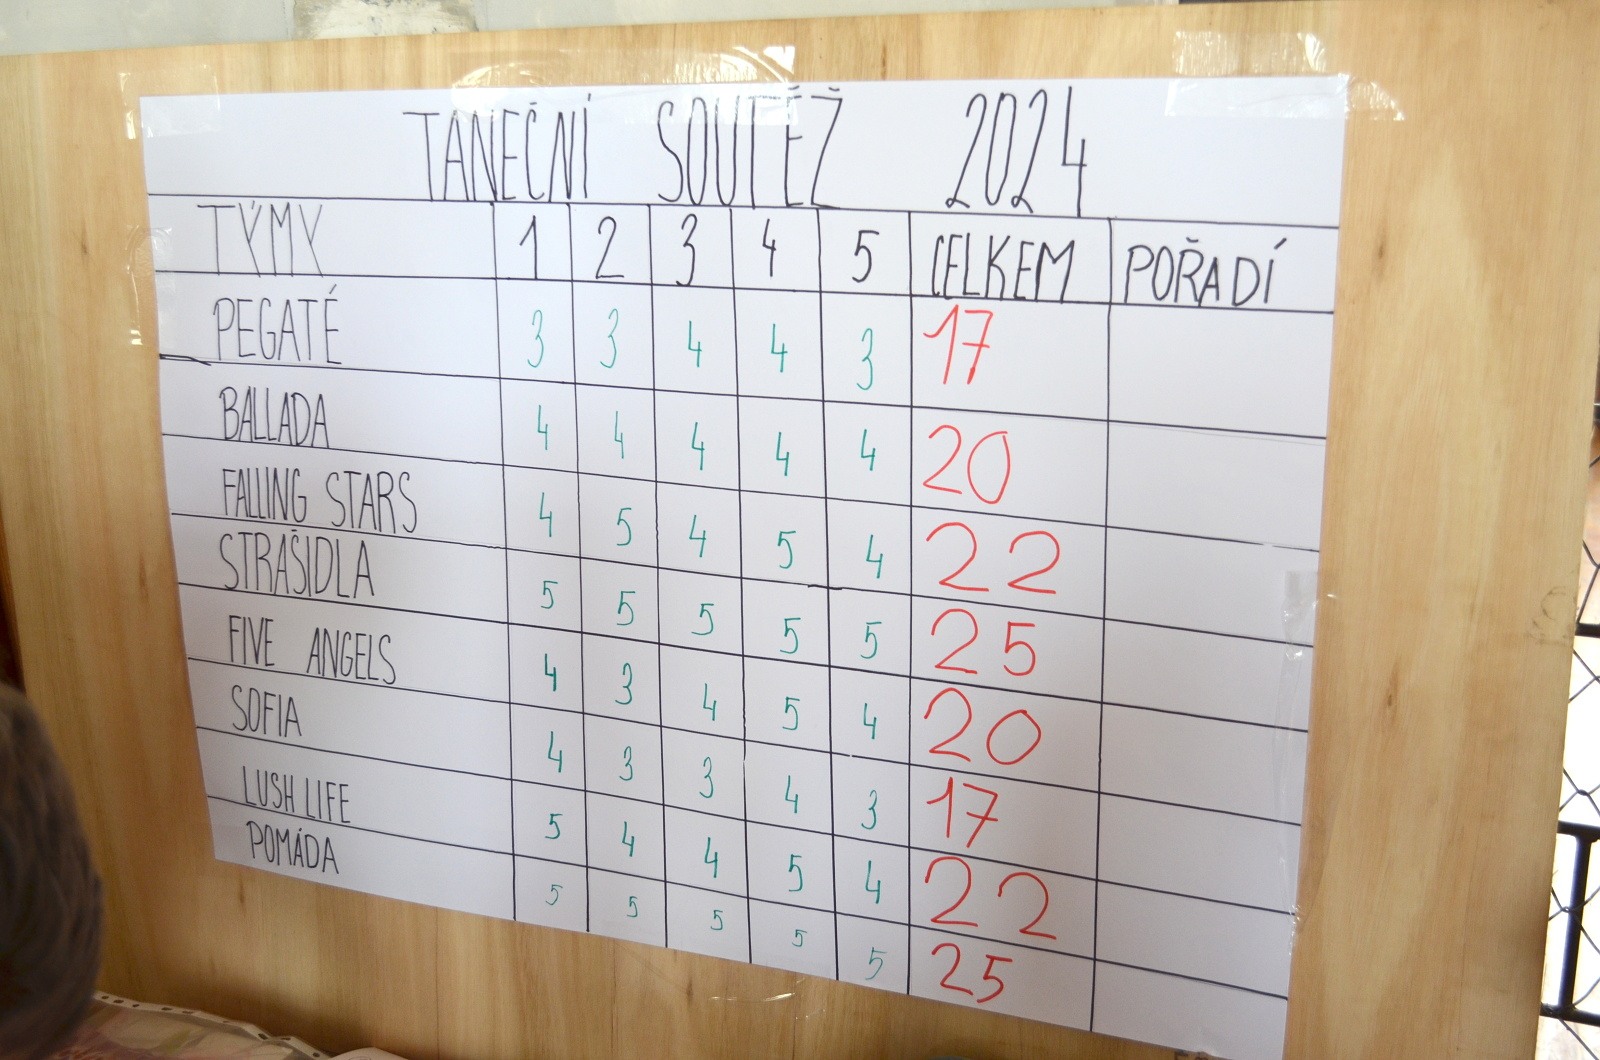 TANEČNÍ SOUTĚŽ 2024
TÝMY 1 2 3 4 5 CELKEM POŘADÍ
PEGATÉ 3 3 4 4 3 17
BALLADA 4 4 4 4 4 20
FALLING STARS 4 5 4 5 4 22
STRAŠIDLA 5 5 5 5 5 25
FIVE ANGELS 4 3 4 5 4 20
SOFIA 4 3 3 4 3 17
LUSH LIFE 5 4 4 5 4 22
POMÁDA 5 5 5 5 5 25